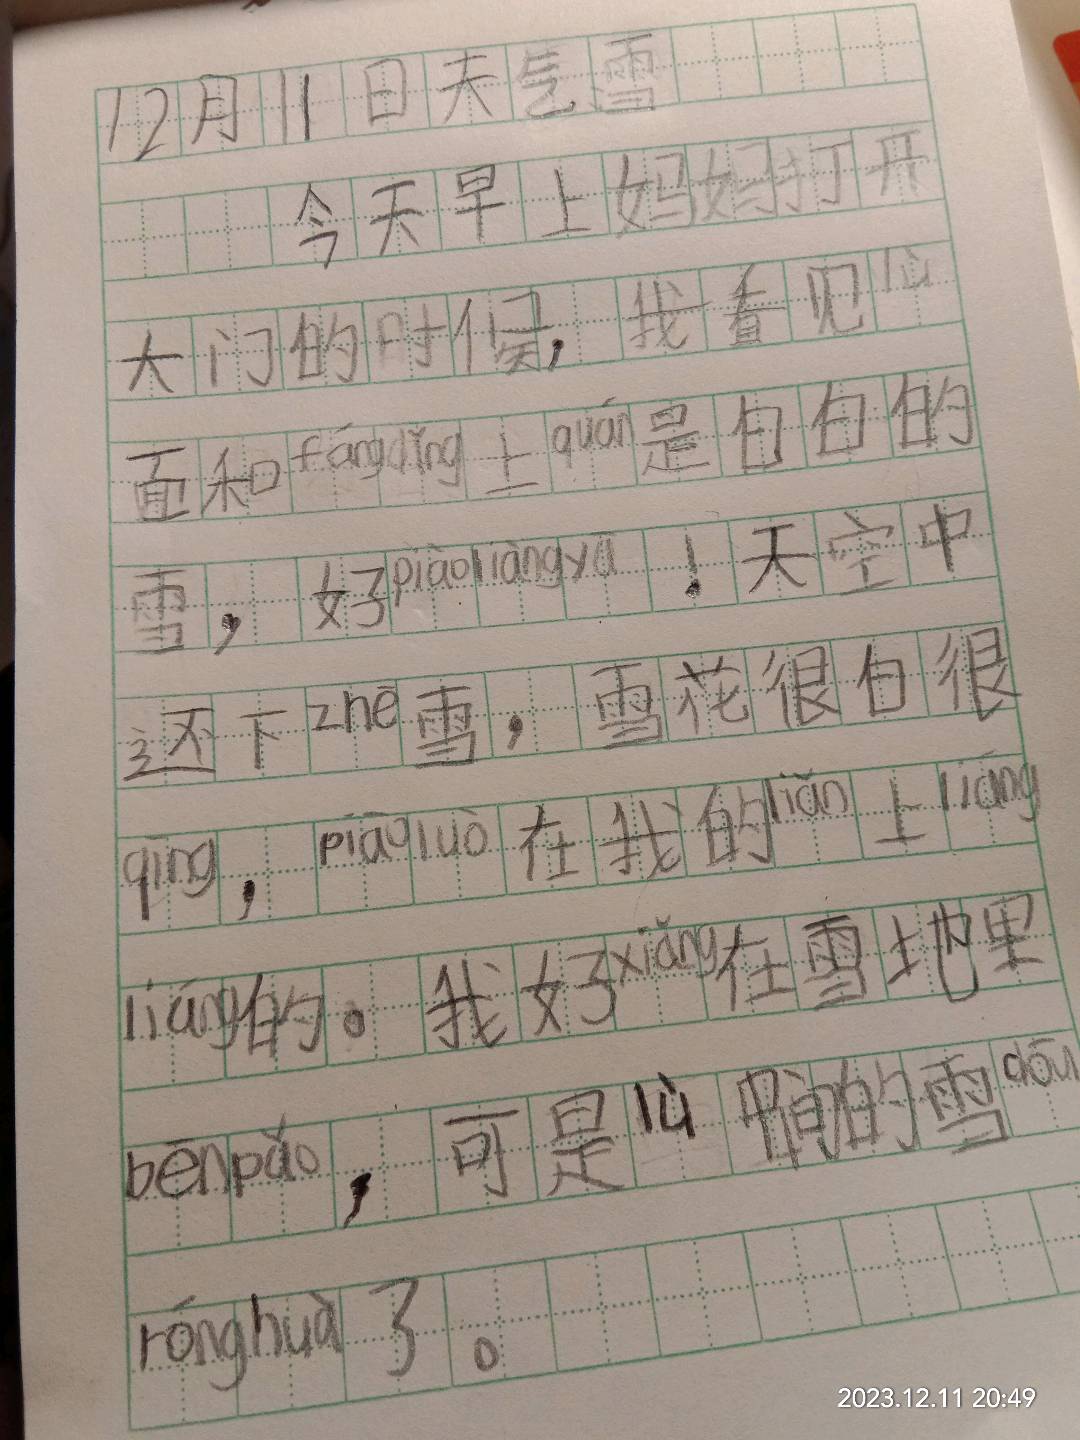 12月11日天气雪
今天早上妈妈打开
大门的时候，我看见lù
面和fángdǐng上quán是白白的
雪，好piàoliàngyā！天空中
还下zhē雪，雪花很白很
qīng，piāoluò在我的liǎn上liáng
liáng的。我好xiǎng在雪地里
bēnpǎo，可是lù中间的雪dōu
rónghuà了。
2023.12.11 20:49